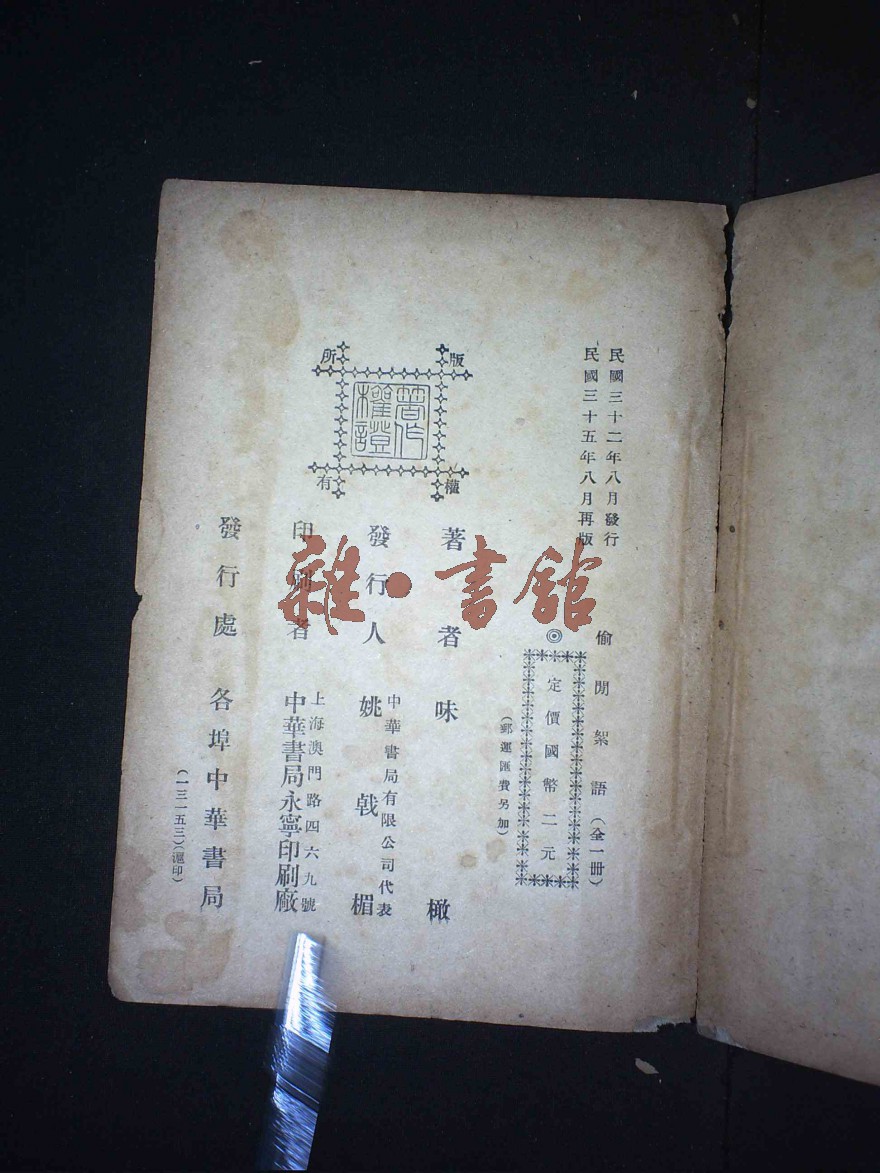 民國三十二年八月發行
民國三十五年八月再版
偷閒絮語（全一冊）
◎定價國幣二元
（郵運匯費另加）
版權所有
著作權證
著者 味橄
發行人 中華書局有限公司代表
姚戟楣
印刷者 上海澳門路四六九號
中華書局永寧印刷廠
發行處 各埠中華書局
（一三一五三）（滬印）
雜·書館